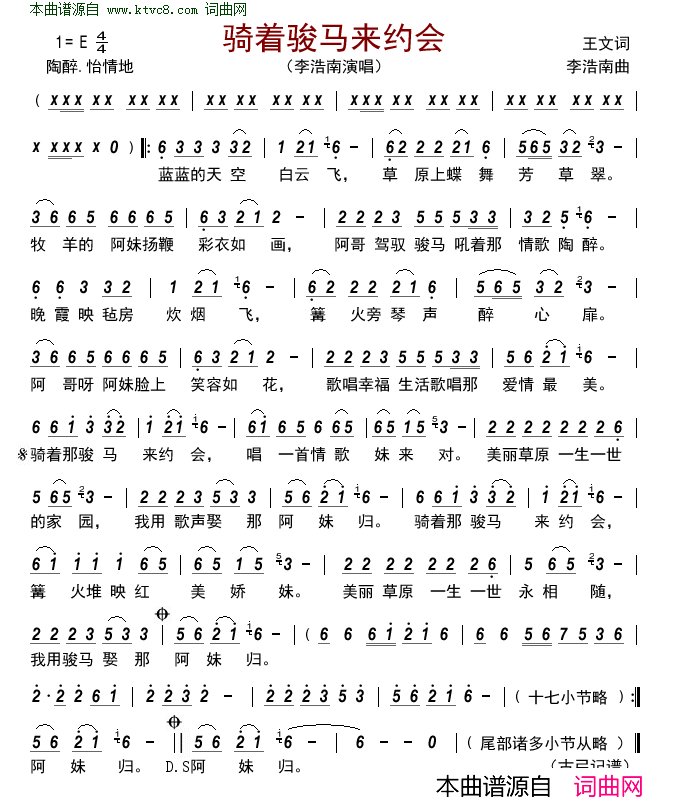 本曲谱源自 www.ktvc8.com 词曲网
1= E 4/4 骑着骏马来约会 王文词
陶醉.怡情地 （李浩南演唱） 李浩南曲
( xxx xxx | xx xx xx xx | xxx xxx xxx xxx | xx xx xx xx |
x xxx x 0 ) ‖: 6 3 3 3 32 | 1 21 1 6 - | 62 2 2 21 6 | 565 32 2 3 - |
蓝蓝的天 空 白云 飞， 草 原上蝶 舞 芳 草 翠。
36 65 6665 | 63 21 2 - | 2223 5533 | 32 5 1 6 - |
牧 羊的 阿妹扬鞭 彩衣如 画， 阿哥 驾驭 骏马 吼着那 情歌 陶 醉。
6 6 3 3 32 | 1 21 1 6 - | 62 22 21 6 | 565 32 2 3 - |
晚 霞 映 毡房 炊 烟 飞， 篝 火旁 琴 声 醉 心 扉。
36 65 6665 | 63 21 2 - | 2223 5533 | 56 21 i 6 - |
阿 哥呀 阿妹脸上 笑容如 花， 歌唱幸福 生活歌唱那 爱情 最 美。
6 61 3 32 | 1 21 i 6 - | 61 65 6 65 | 65 15 5 3 - | 2222 2226 |
※骑着那骏 马 来约 会， 唱 一首情 歌 妹 来 对。 美丽草原 一生一世
5 65 2 3 - | 2223 533 | 56 21 i 6 - | 6 61 3 32 | 1 21 i 6 - |
的家 园， 我用 歌声娶 那 阿 妹 归。 骑着那 骏马 来 约 会，
61 11 1 65 | 65 15 5 3 - | 22 22 22 26 | 5 65 2 3 - |
篝 火堆 映 红 美 娇 妹。 美丽 草原 一生 一世 永 相 随，
2223 533 | 56 21 i 6 - | ( 6 6 6121 6 | 6 6 567536 |
我用骏马 娶 那 阿 妹 归。
2·2 22 61 | 2 23 2 - | 2 2 23 53 | 56 21 6 - | ( 十七小节略 ) :‖
56 21 i 6 - ‖ 56 21 i 6 - | 6 - - 0 | ( 尾部诸多小节从略 ) ‖
阿 妹 归。 D.S阿 妹 归。 (古弓记谱)
本曲谱源自 词曲网